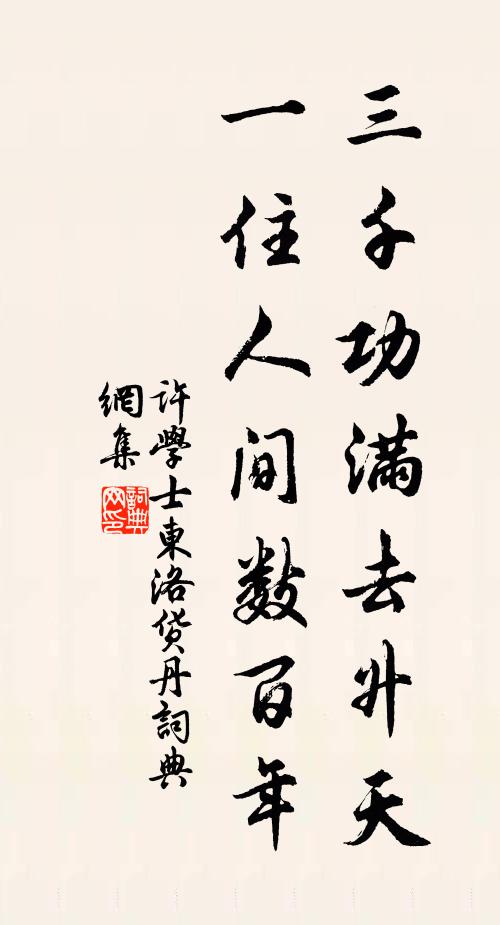 三千功滿去升天
一住人间數百年
許學士東洛貨丹詞典
網集
詞典
网印